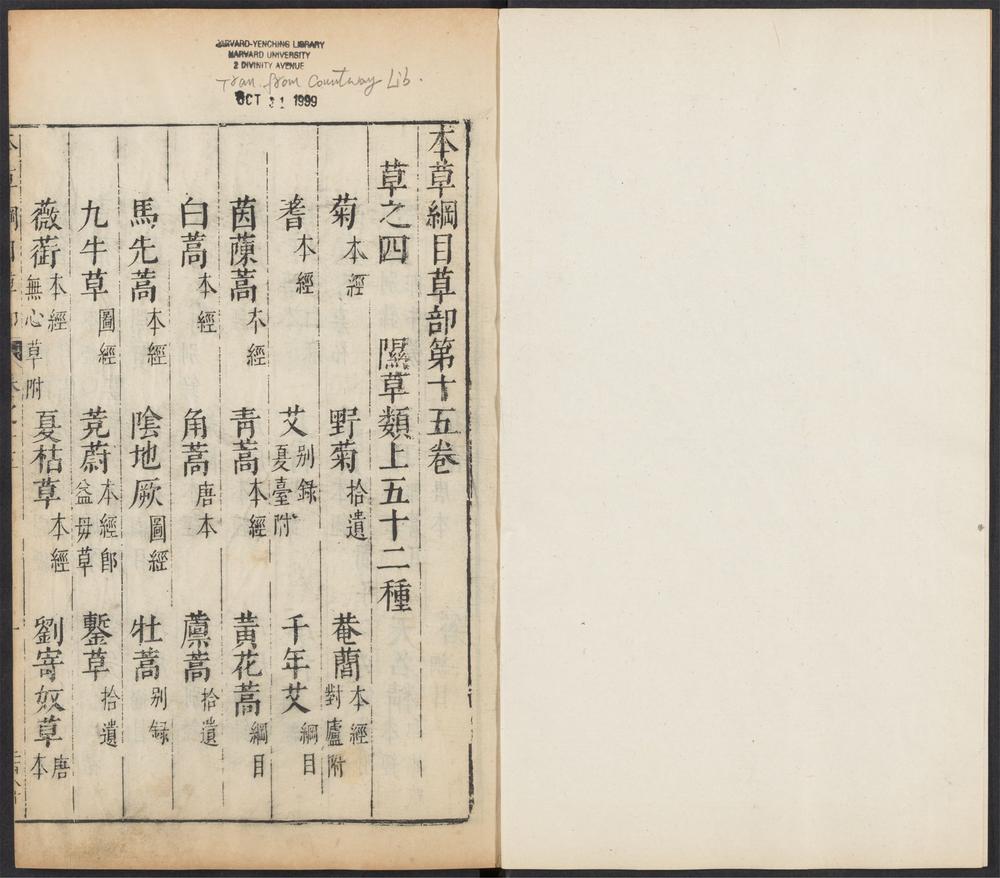 HARVARD-YENCHING LIBRARY
HARVARD UNIVERSITY
2 DIVINITY AVENUE
Tran. from Countway Lib.
OCT 21 1999
本草綱目草部第十五卷
草之四 隰草類上五十二種
菊本經 野菊拾遺 菴䕡本經對廬附
蓍本經 艾别錄夏臺附 千年艾綱目
茵蔯蒿本經 青蒿本經 黃花蒿綱目
白蒿本經 角蒿唐本 藘蒿拾遺
馬先蒿本經 陰地厥圖經 牡蒿别録
九牛草圖經 茺蔚本經即益母草 鏨草拾遺
薇蘅本經無心草附 夏枯草本經 劉寄奴草唐本